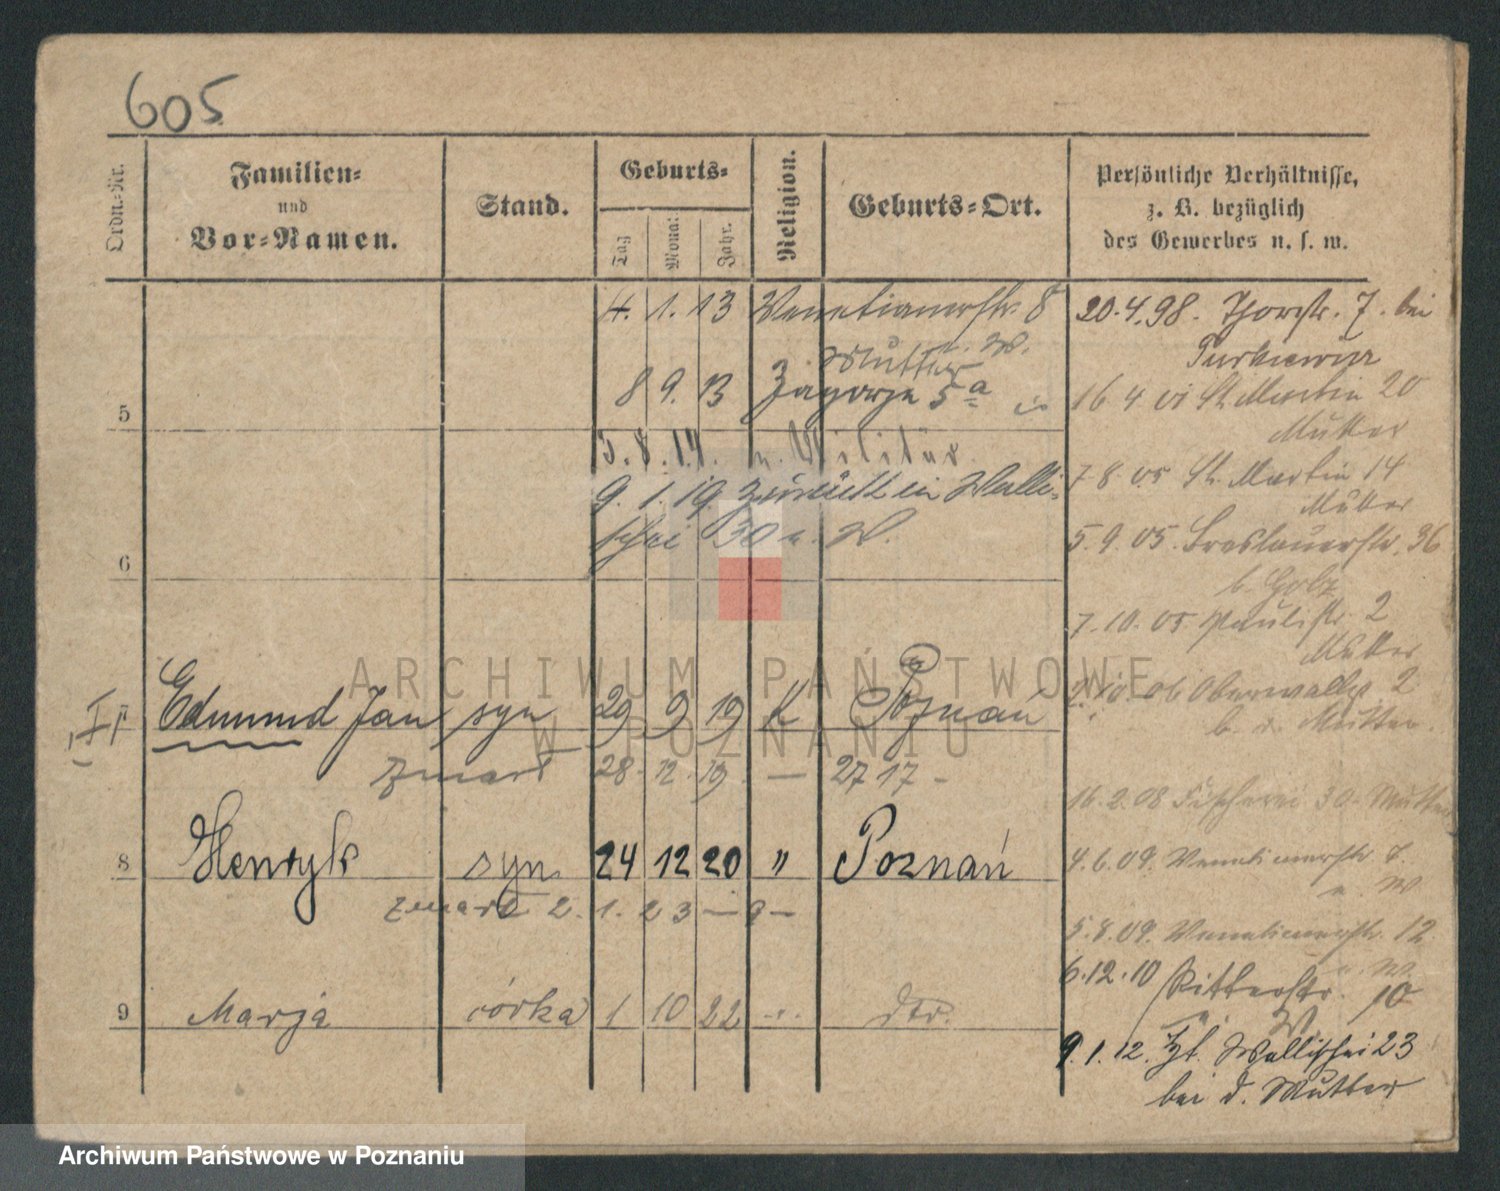 605
Ordn.-Nr.
Familien-
und
Vor-Namen.
Stand.
Geburts-
Tag
Monat
Jahr.
Religion.
Geburts-Ort.
Persönliche Verhältnisse,
z. B. bezüglich
des Gewerbes u. s. w.
4. 1. 13 Venetianerstr. 8
u. W.
Mutter
8 9. 13 Zagorze 5a
5
5. 8. 14. z. Militär
9. 1. 19. zurück in Walli-
schei 30 u. W.
6
7 Edmund Jan syn 29 9 19 K Poznań
zmarł 28. 12. 19. — 27 17 -
8 Henryk syn 24 12 20 " Poznań
zmarł 2. 1. 23 — 9 —
9 Marja córka 1 10 22 -"- dto.
20. 4. 98. Thorstr. 7. bei
16 4 01 St. Martin 20
Mutter
7. 8. 05 St. Martin 14
Mutter
5. 9. 05. Breslauerstr. 36
b. Golz
7. 10. 05 Paulistr. 2
Mutter
2. 10. 06 Oberwallstr 2
b. d. Mutter.
16. 2. 08 Fischerei 30. Mutter
4. 6. 09. Venetianerstr 7.
u. W
5. 8. 09. Venetianerstr. 12
u. W
6. 12. 10 Ritterstr. 10
u. W.
9. 1. 12. Zt. Wallischei 23
bei d. Mutter
ARCHIWUM PAŃSTWOWE
W POZNANIU
Archiwum Państwowe w Poznaniu